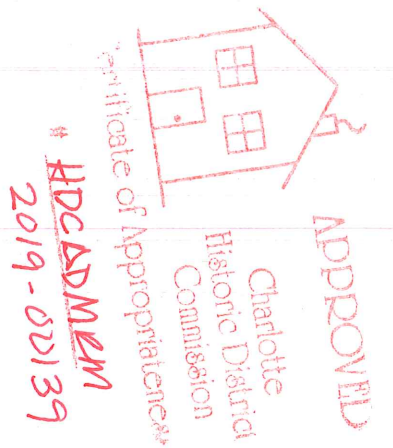 APPROVED
Charlotte
Historic District
Commission
Certificate of Appropriateness
# HDCADMRM
2019-00139